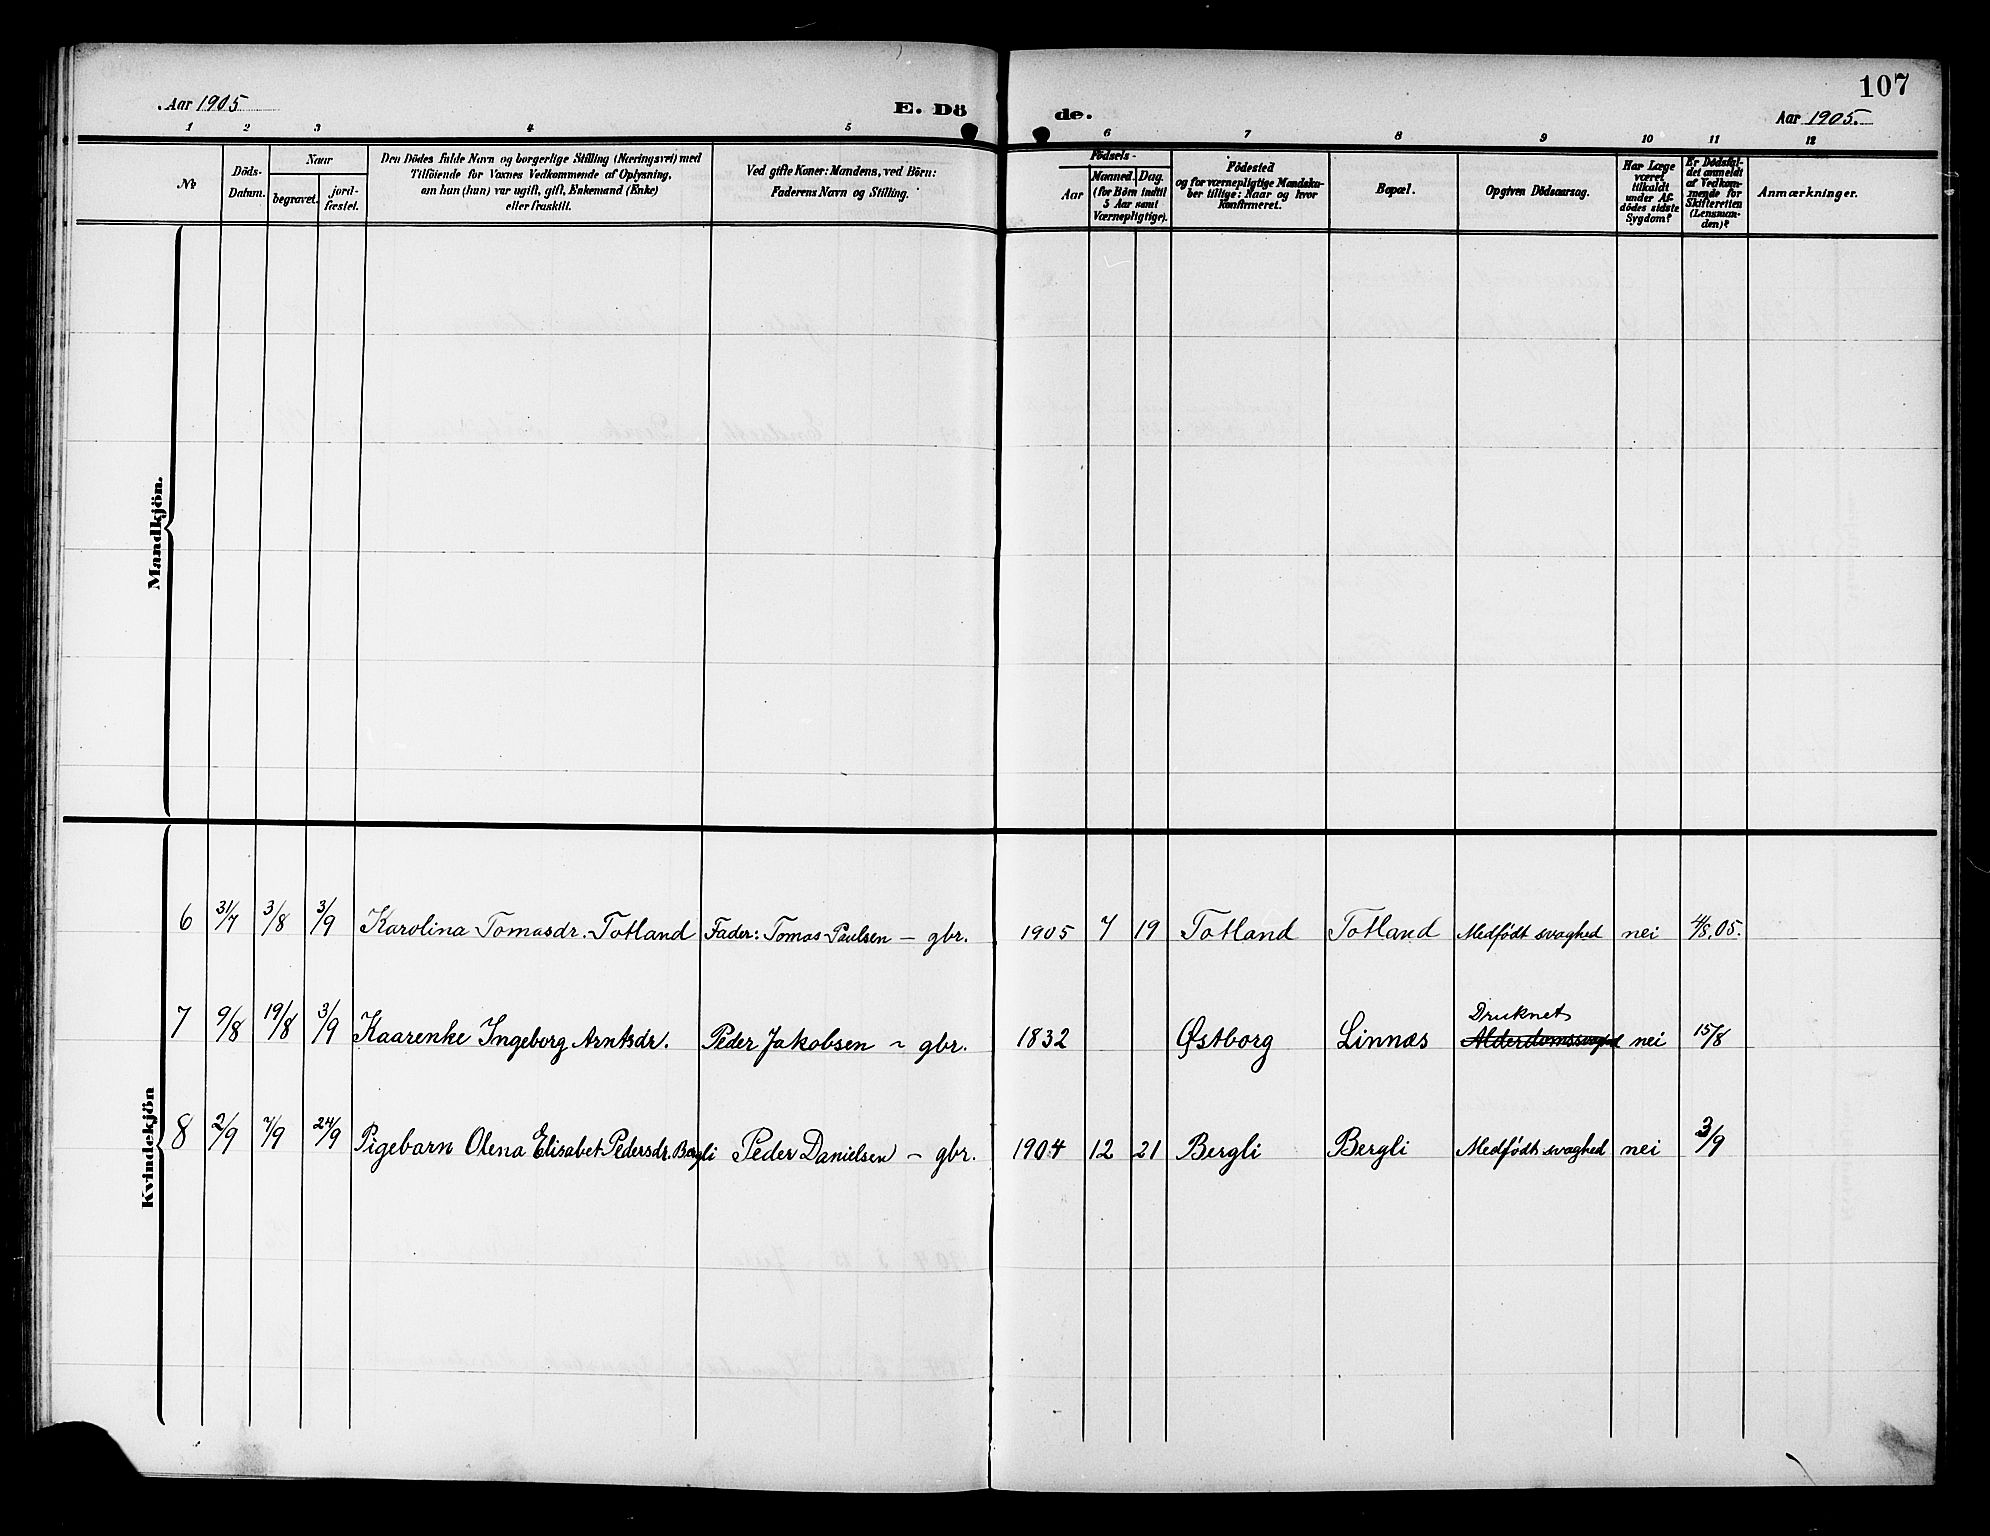 107
Aar 1905
E. Dö
de.
Aar 1905.
1 2 3 4 5 6 7 8 9 10 11 12
No
Döds-
Datum.
Naar
begravet.
jord-
fæstet.
Den Dödes fulde Navn og borgerlige Stilling (Næringsvei) med
Tilföiende for Voxnes Vedkommende af Oplysning,
om hun (han) var ugift, gift, Enkemand (Enke)
eller fraskilt.
Ved gifte Koner: Mandens, ved Börn:
Faderens Navn og Stilling.
Födsels-
Aar
Maaned. Dag.
(for Börn indtil
5 Aar samt
Værnepligtige).
Födested
og for værnepligtige Mandska-
ber tillige: Naar og hvor
Konfirmeret.
Bopæl.
Opgiven Dödsaarsag.
Har Læge
været
tilkaldt
under Af-
dödes sidste
Sygdom?
Er Dödsfal-
det anmeldt
af Vedkom-
mende for
Skifteretten
(Lensman-
den)?
Anmærkninger.
Mandkjön.
Kvindekjön
6 31/7 3/8 3/9 Karolina Tomasdr. Totland Fader: Tomas Paulsen – gbr. 1905 7 19 Totland Totland Medfödt svaghed nei 4/8.05.
Druknet
7 9/8 19/8 3/9 Kaarenke Ingeborg Arntsdr. Peder Jakobsen ~ gbr. 1832 Østborg Linnæs Alderdomssvaghed nei 15/8
8 2/9 7/9 24/9 Pigebarn Olena Elisabet Pedersdr. Bergli Peder Danielsen – gbr. 1904 12 21 Bergli Bergli Medfödt svaghed nei 3/9